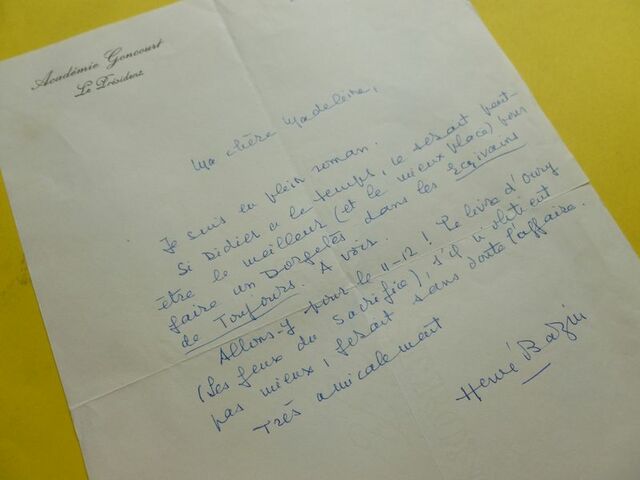 Académie Goncourt
Le Président
Ma chère Madeleine,
Je suis en plein roman.
Si Didier a le temps, ce serait peut-
être le meilleur (et le mieux placé) pour
faire un Dorgelès dans les Ecrivains
de Toujours. A voir.
Allons-y pour le 11-12! Le livre d'Oury
(Les feux du Sacrifice), s'il n'y en
pas mieux, ferait sans doute l'affaire.
Très amicalement
Hervé Bazin